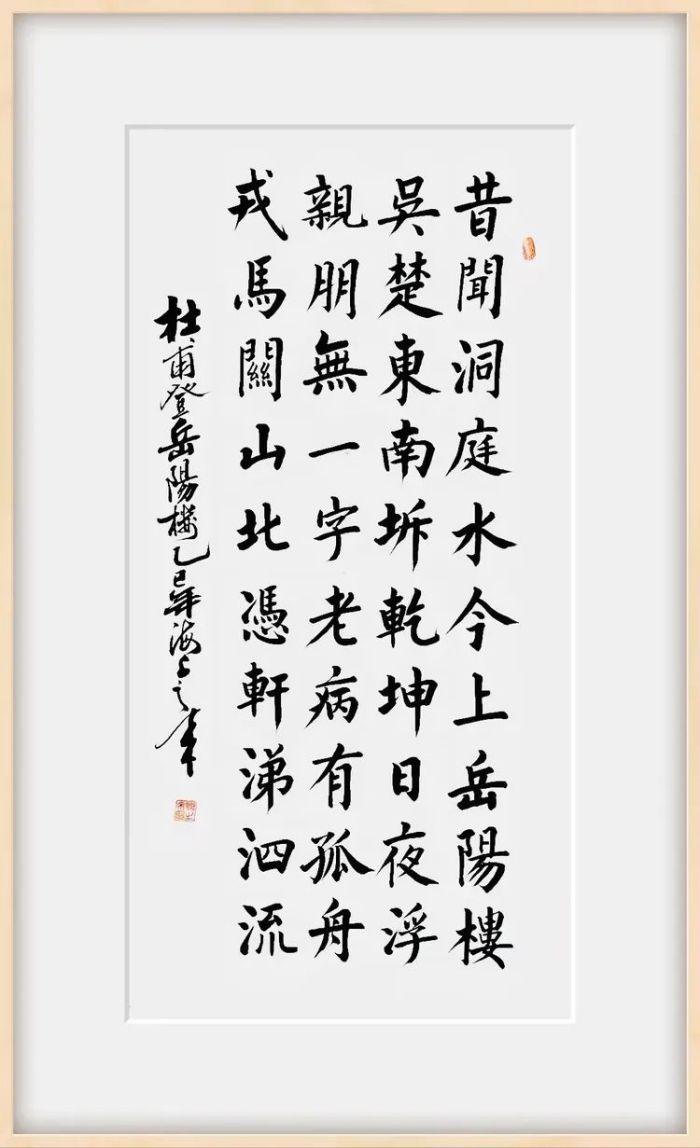 昔聞洞庭水今上岳陽樓
吳楚東南坼乾坤日夜浮
親朋無一字老病有孤舟
戎馬關山北憑軒涕泗流
杜甫登岳陽樓乙巳年海